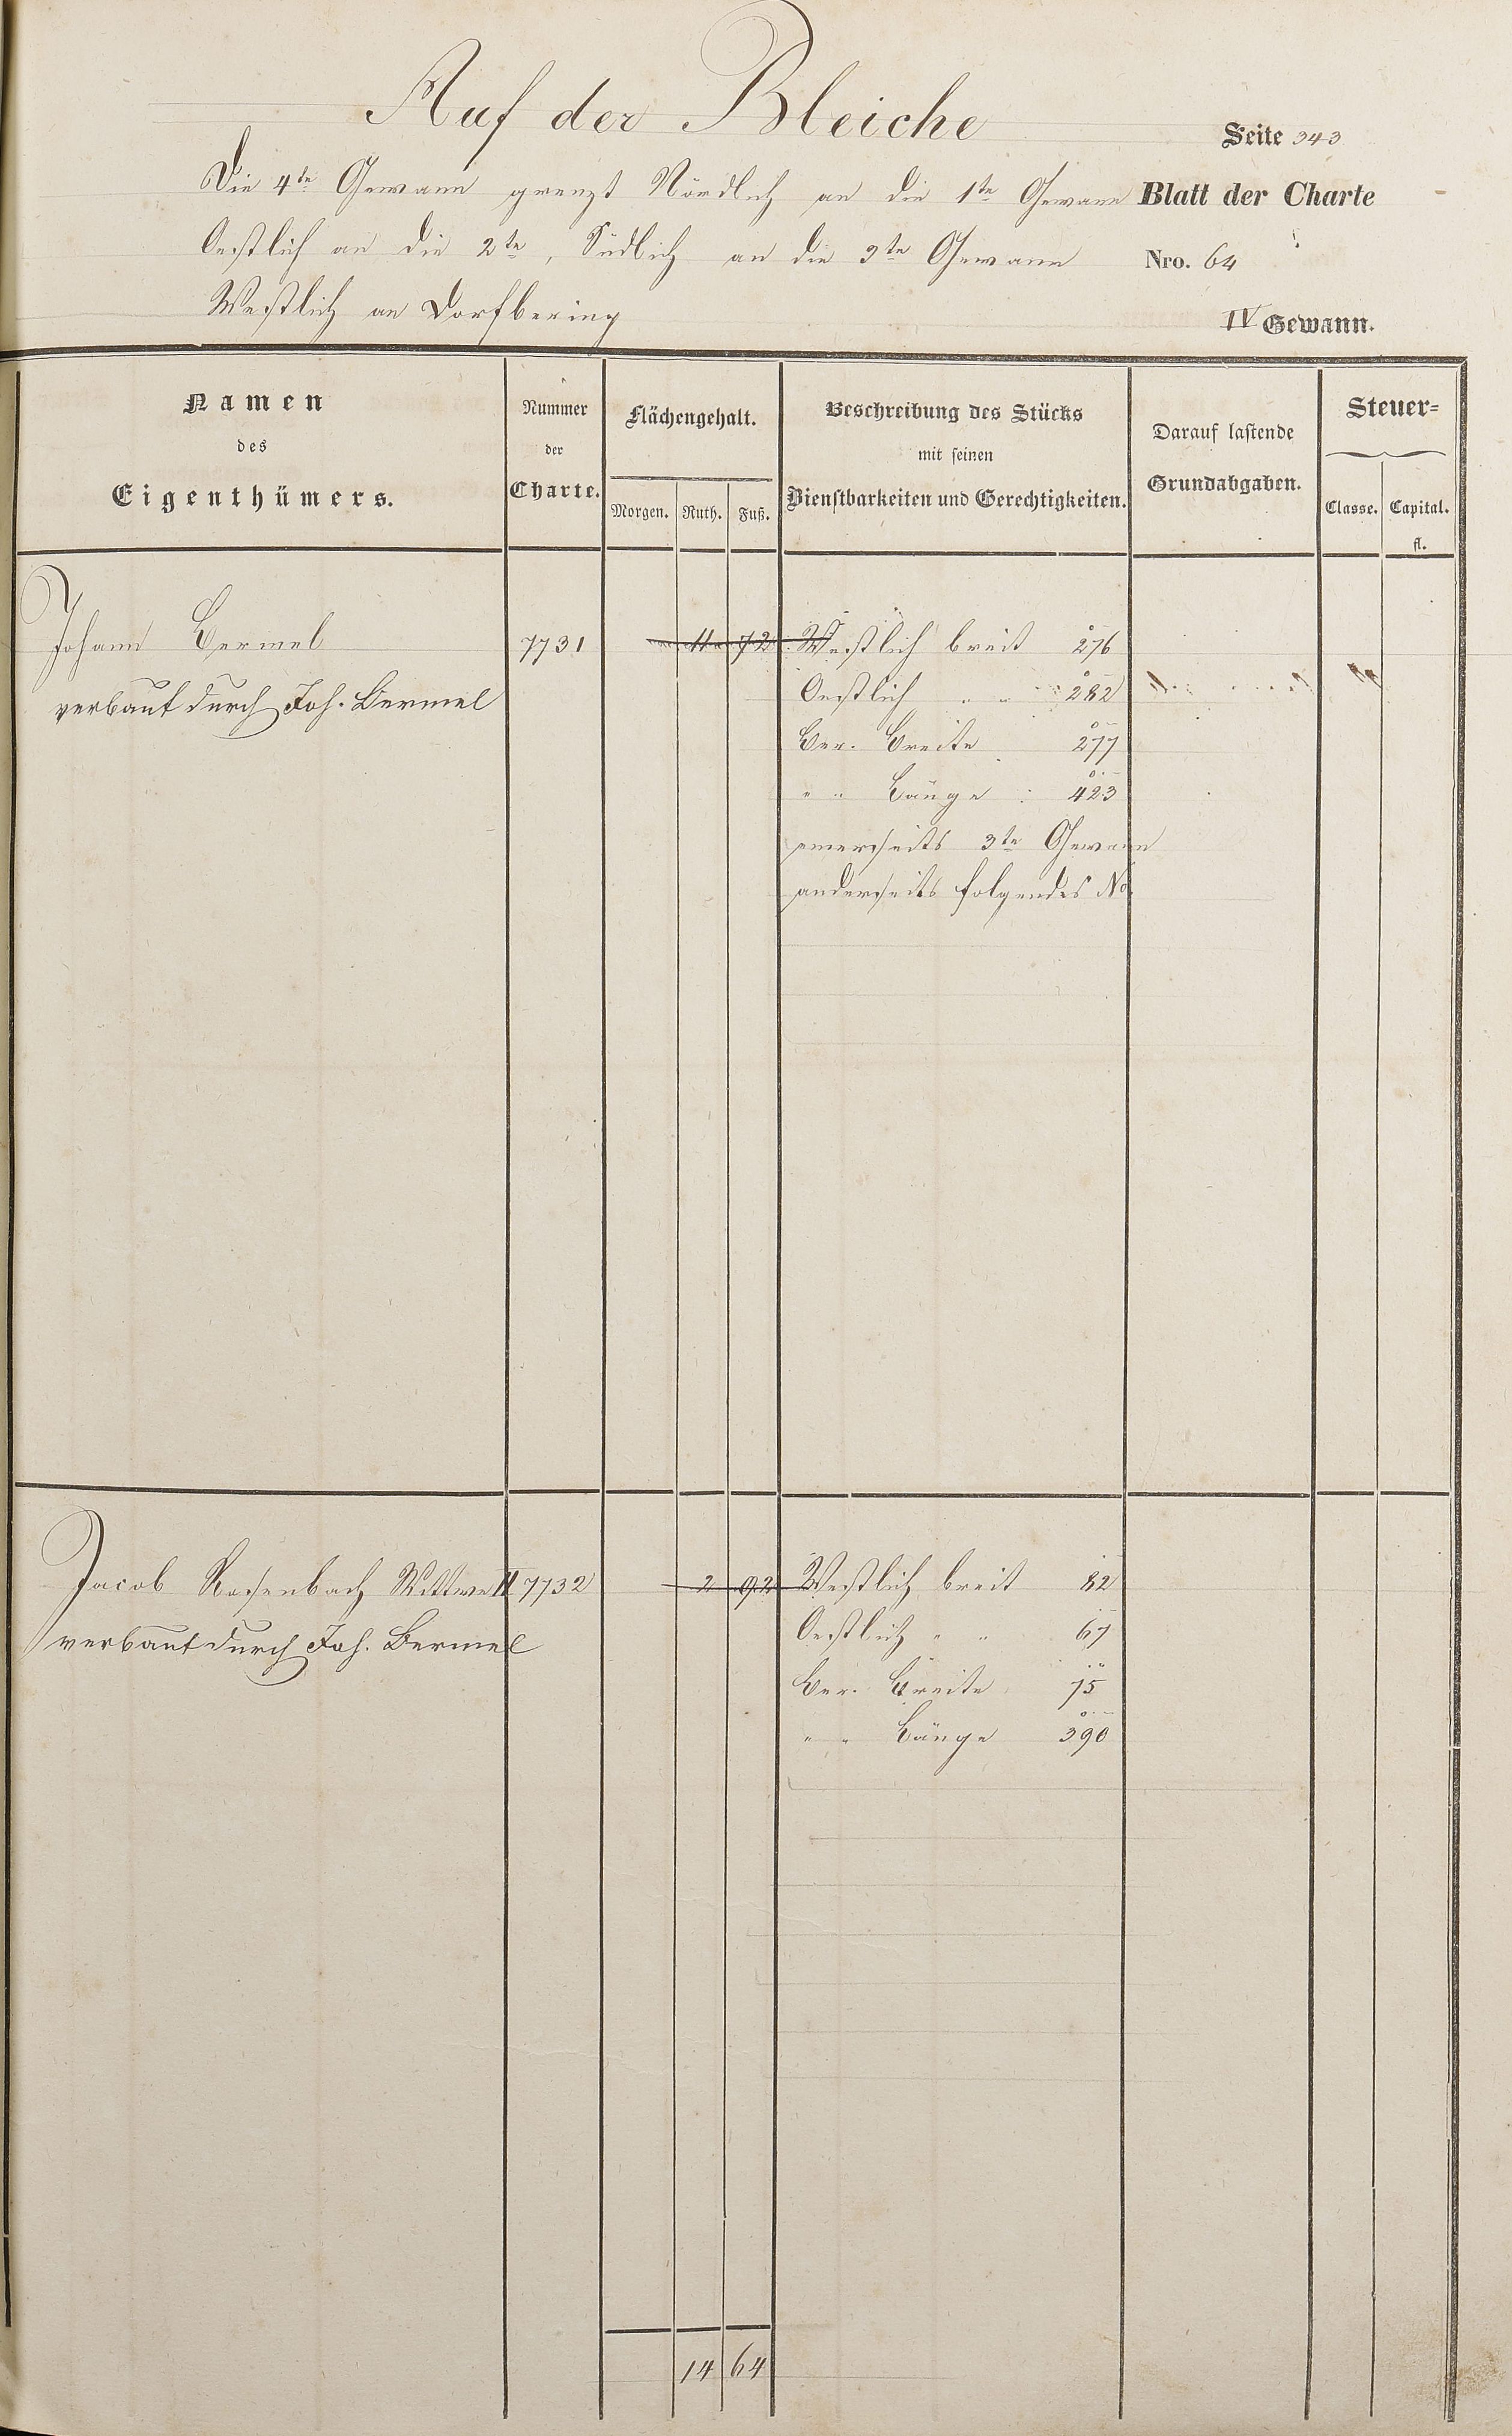 Auf der Bleiche
Seite 343
Die 4te Gewann grenzt Nördlich an die 1te Gewann
Blatt der Charte
Oestlich an die 2te, Südlich an die 3te Gewann
Nro. 64
Westlich an Dorfbering
IV Gewann.
Namen
des
Eigenthümers.
Nummer
der
Charte.
Flächengehalt.
Morgen. Ruth. Fuß.
Beschreibung des Stücks
mit seinen
Dienstbarkeiten und Gerechtigkeiten.
Darauf lastende
Grundabgaben.
Steuer=
Classe. Capital.
fl.
Johann Bermel 7731 11 72 Westlich breit 276
verbaut durch Joh. Bermel
Oestlich " " 282
Ber. Breite 277
" " Länge : 423
einerseits 3te Gewann
anderseits folgendes No
Jacob Rosenbach Wittwe II 7732 2 92 Westlich breit 82
verbaut durch Joh. Bermel
Oestlich " " 67
Ber. Breite 75
" " Länge 390
14 64